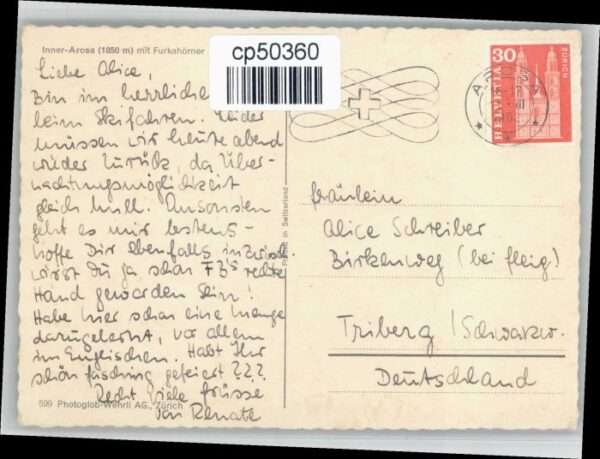 Inner-Arosa (1850 m) mit Furkahörner
cp50360
Liebe Alice,
Bin im herrliche
beim Skifahren. Leider
müssen wir heute abend
wieder zurück, da Über-
nachtungsmöglichkeit
gleich null. Ansonsten
geht es mir bestens -
hoffe Dir ebenfalls, inzwisch.
wirst Du ja schon FB's rechte
Hand geworden sein!
Habe hier schon eine Menge
dazugelernt, vor allem
im Englischen. Habt Ihr
schön fasching gefeiert???
Recht viele Grüsse
von Renate
599 Photoglob-Wehrli AG., Zürich
in Switzerland
30
HELVETIA
ZÜRICH
Fräulein
Alice Schreiber
Birkenweg (bei Fleig)
Triberg /Schwarzw.
Deutschland